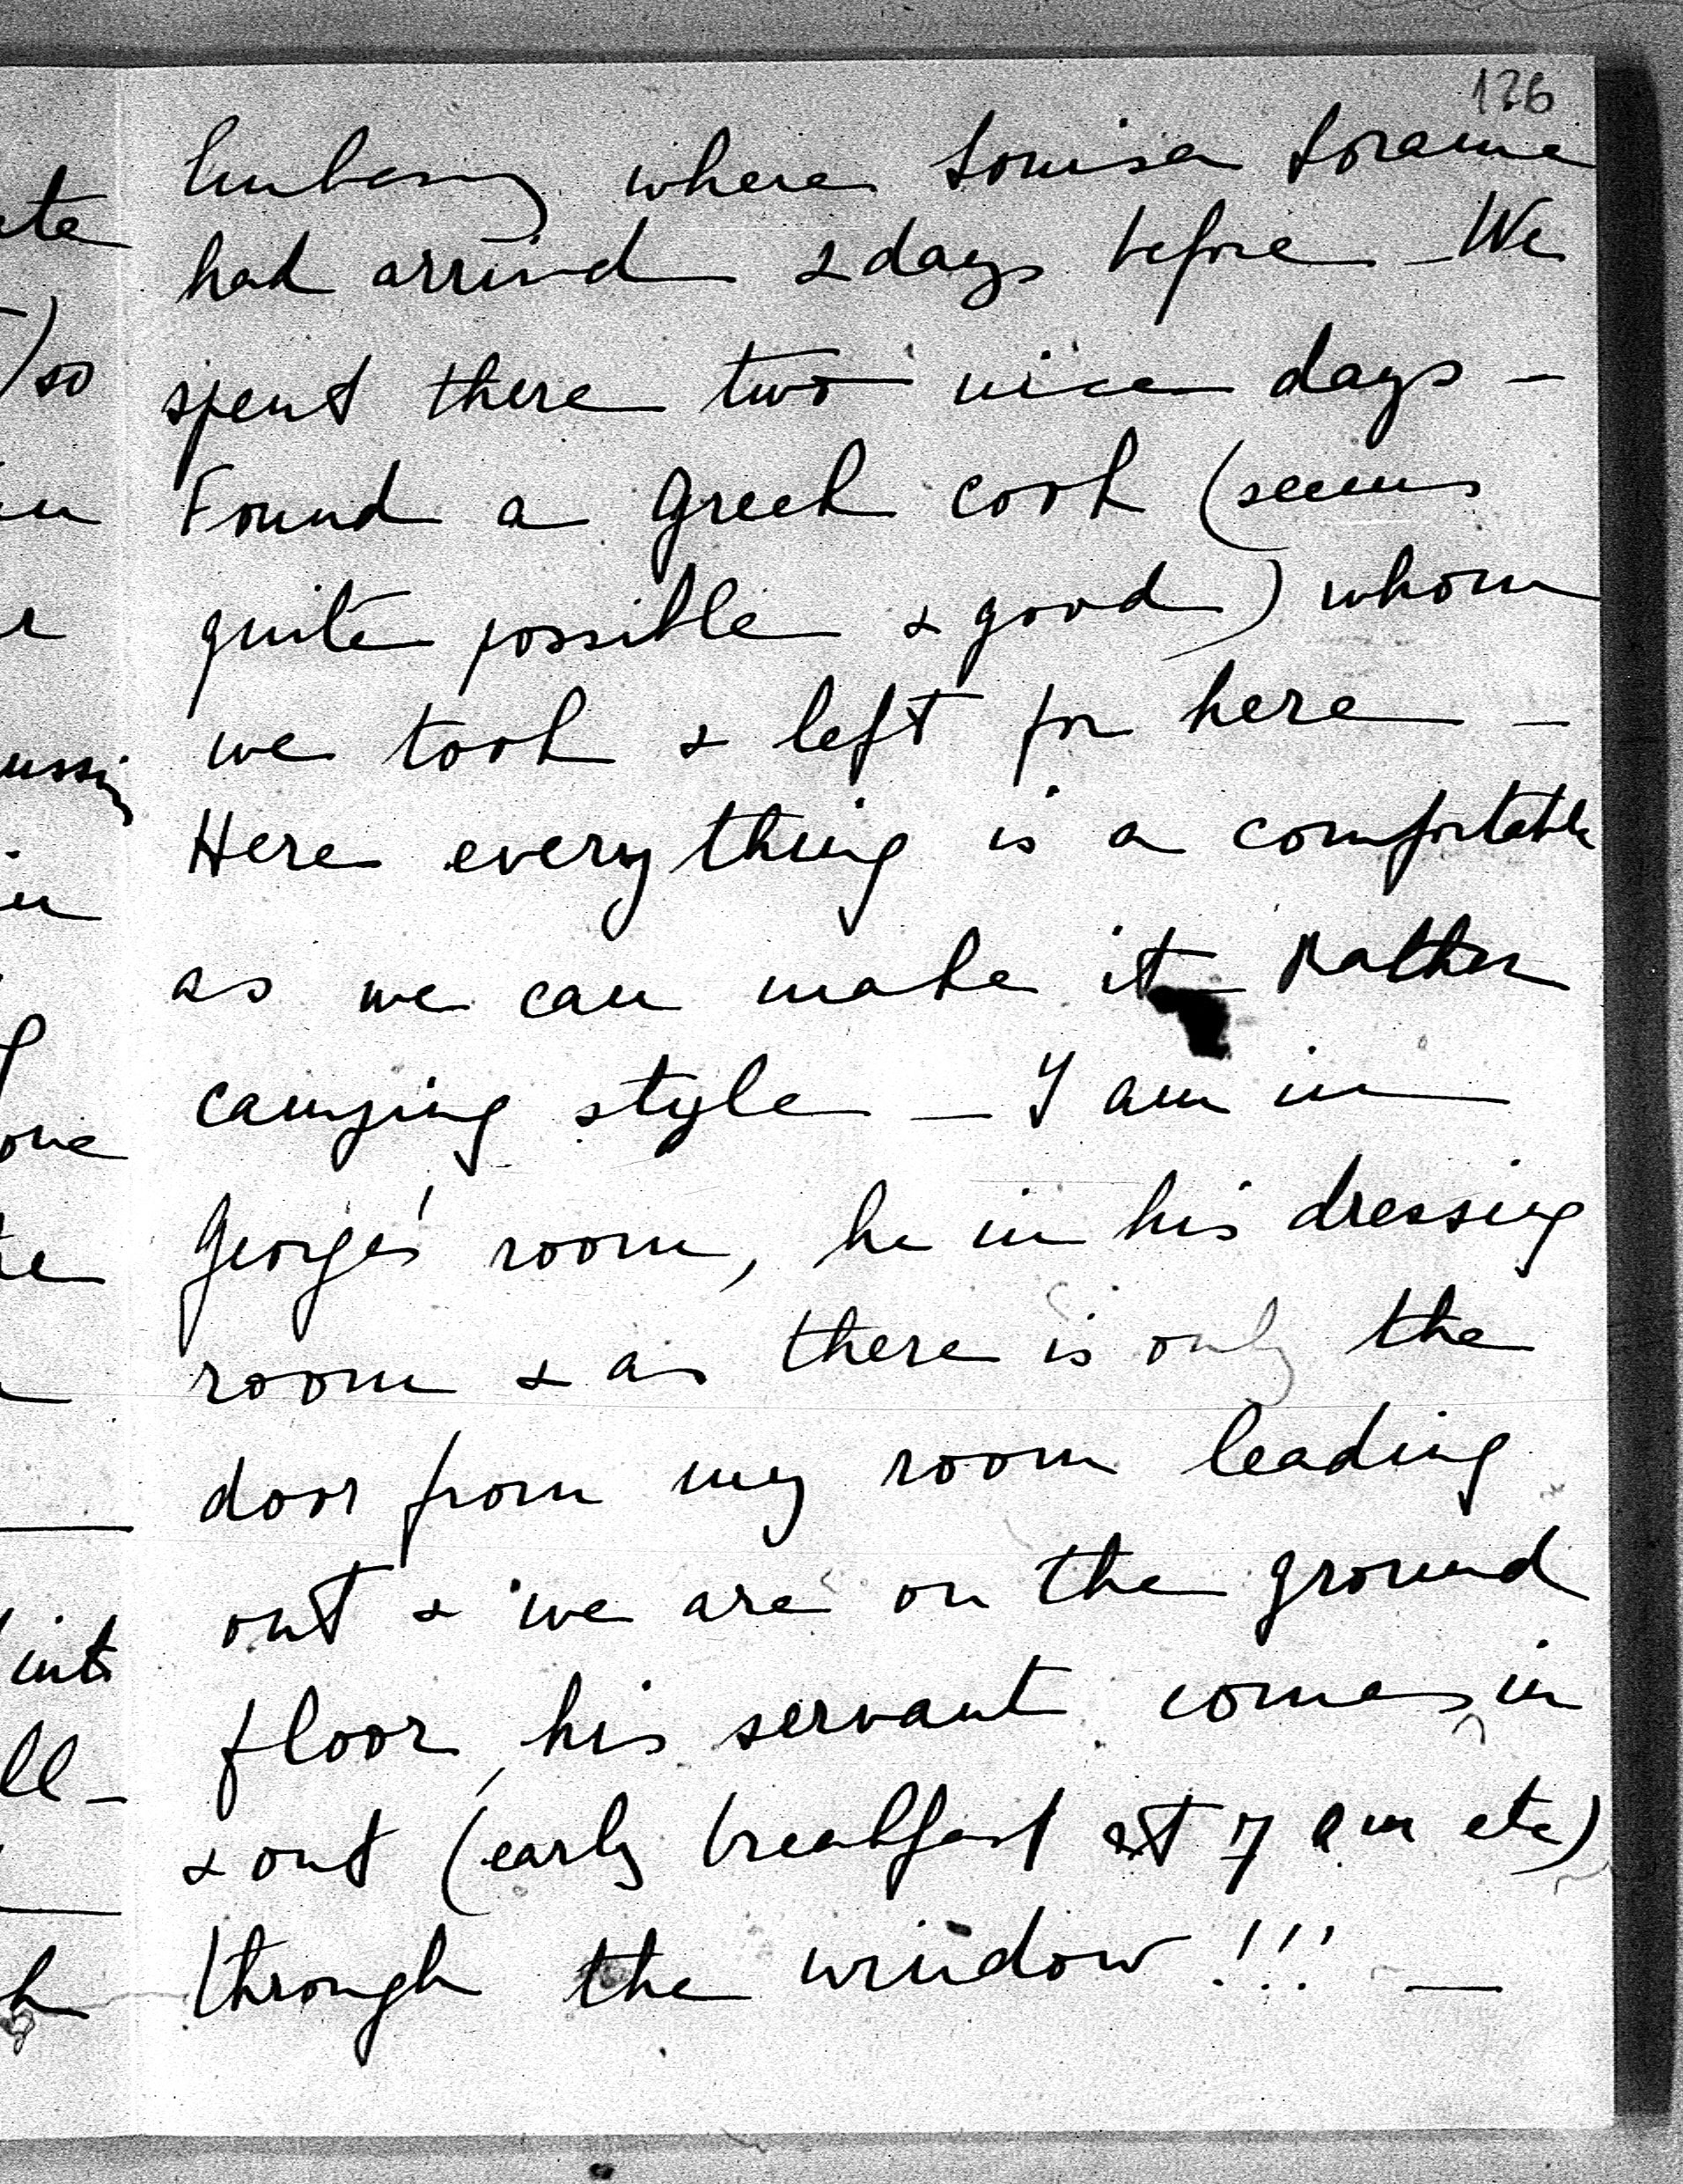 126
Embassy where Louisa Loraine
had arrived 2 days before – We
spent there two nice days –
Found a Greek cook (seems
quite possible & good) whom
we took & left for here –
Here everything is a comfortable
as we can make it – Rather
camping style – I am in
George's room, he in his dressing
room & as there is only the
door from my room leading
out & we are on the ground
floor, his servant comes in
& out (early breakfast at 7 a m etc)
through the window!!! –